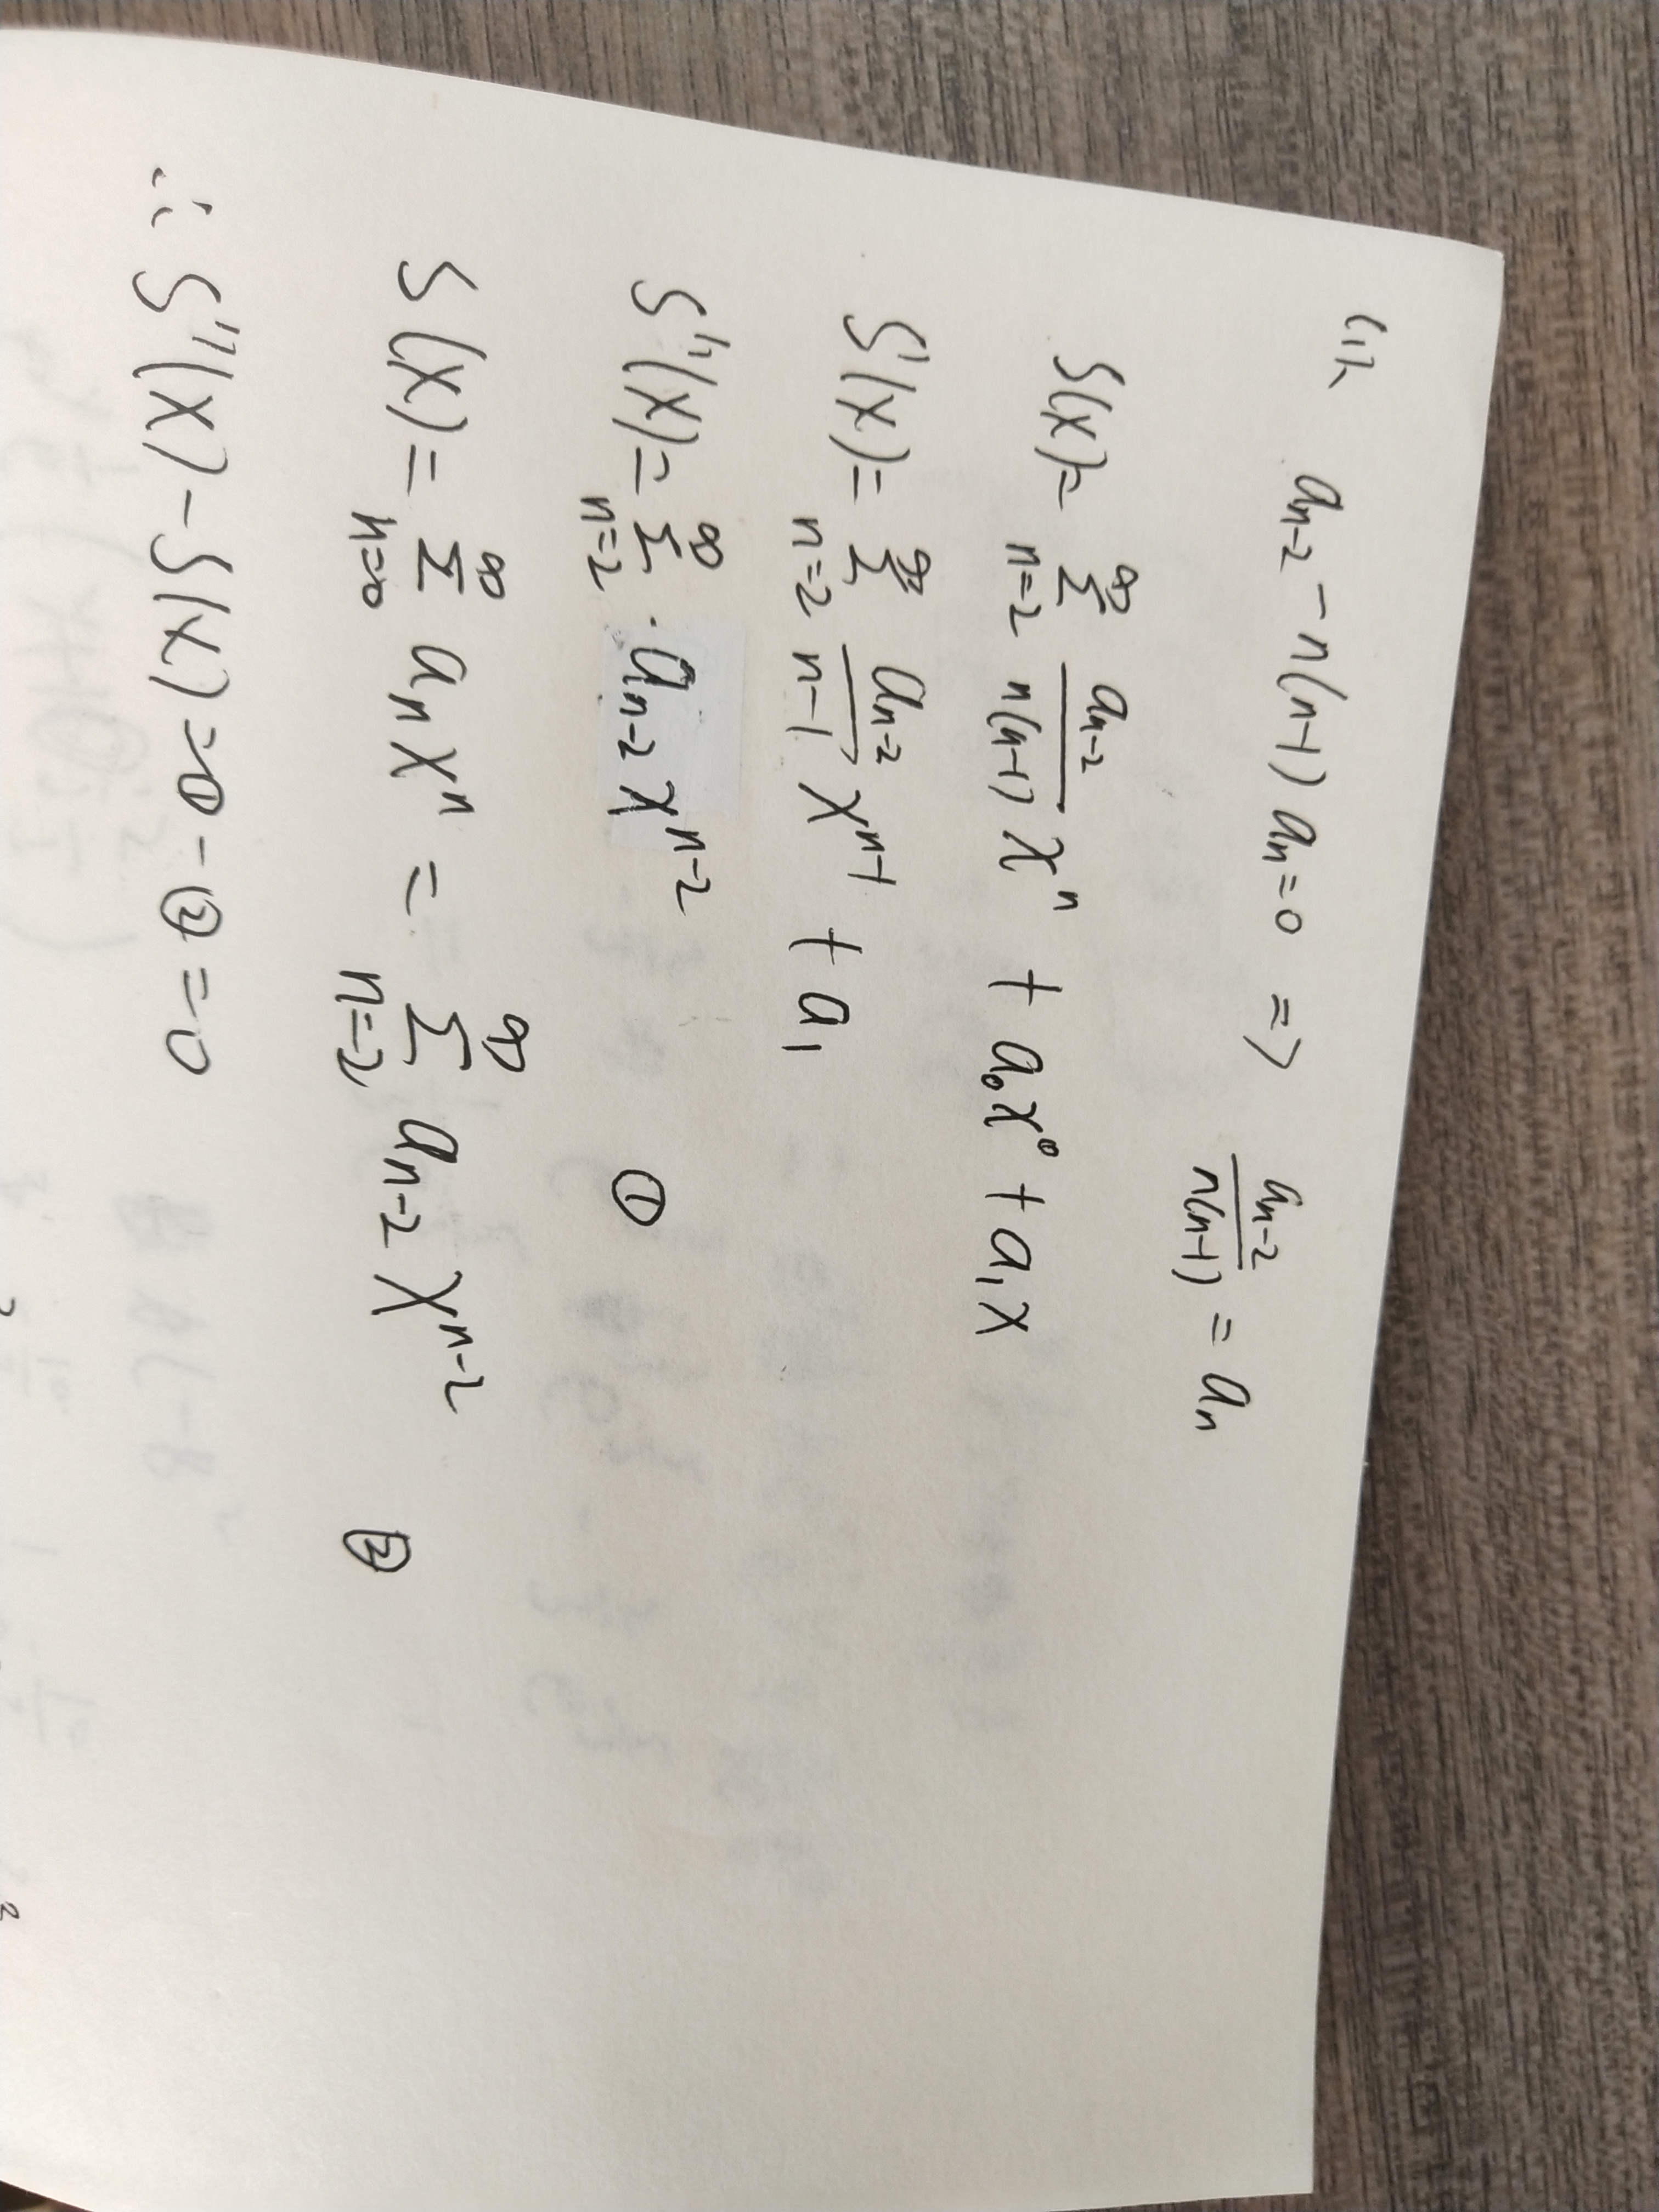 (1)、 aₙ₋₂ - n(n-1) aₙ = 0 => aₙ₋₂/n(n-1) = aₙ
S(x) = ∑_{n=2}^{∞} aₙ₋₂/n(n-1) xⁿ + a₀x⁰ + a₁x
S'(x) = ∑_{n=2}^{∞} aₙ₋₂/n-1 xⁿ⁻¹ + a₁
S''(x) = ∑_{n=2}^{∞} · aₙ₋₂ xⁿ⁻² ①
S(x) = ∑_{n=0}^{∞} aₙ xⁿ = ∑_{n=2}^{∞} aₙ₋₂ xⁿ⁻² ②
∴ S''(x) - S(x) = ① - ② = 0